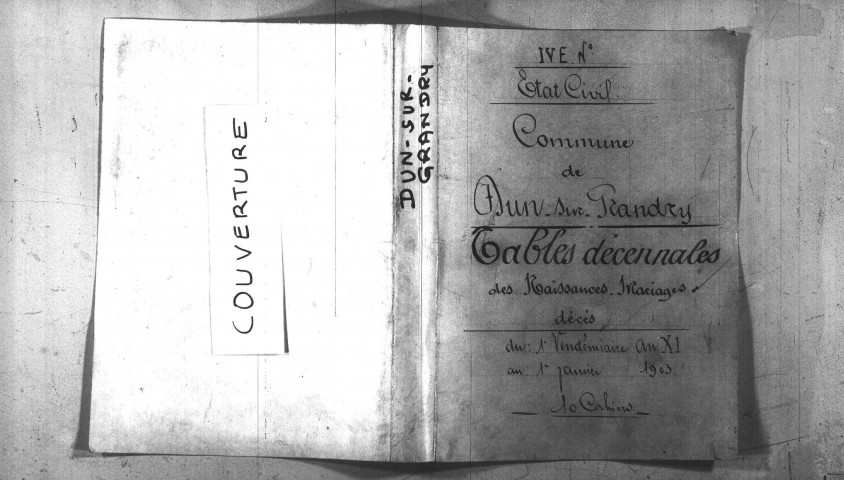 COUVERTURE
DUN-SUR-
GRANDRY
IV E. N°
Etat Civil.
Commune
de
Dun-sur-Grandry
Tables décennales
des Naissances-Mariages
décès
du: 1er Vendémiaire An XI
au 1er janvier 1903
10 Cahiers